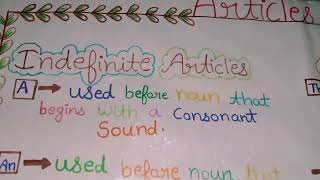 Articles
Indefinite Articles
A → used before noun that
begins with a consonant
Sound.
An → used before noun that